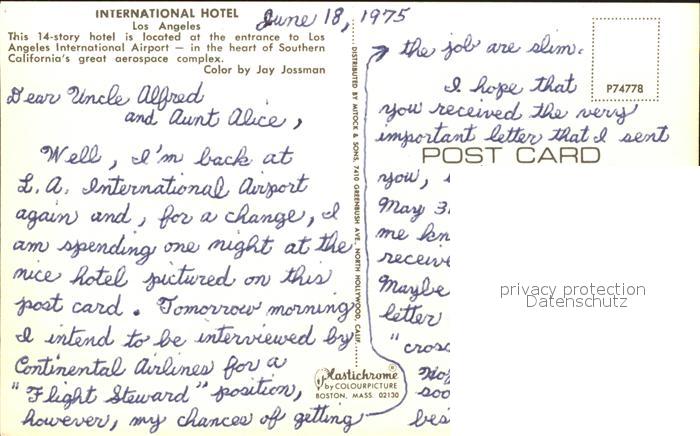 INTERNATIONAL HOTEL
Los Angeles
This 14-story hotel is located at the entrance to Los
Angeles International Airport — in the heart of Southern
California's great aerospace complex.
Color by Jay Jossman
June 18, 1975
Dear Uncle Alfred
and Aunt Alice,
Well, I'm back at
L.A. International Airport
again and, for a change, I
am spending one night at the
nice hotel pictured on this
post card. Tomorrow morning
I intend to be interviewed by
Continental Airlines for a
"Flight Steward" position,
however, my chances of getting
DISTRIBUTED BY MITOCK & SONS, 7410 GREENBUSH AVE., NORTH HOLLYWOOD, CALIF.
Plastichrome
by COLOURPICTURE
BOSTON, MASS. 02130
the job are slim.
I hope that
you received the very
important letter that I sent
POST CARD
P74778
you,
May 31
me
Maybe
letter
privacy protection
Datenschutz